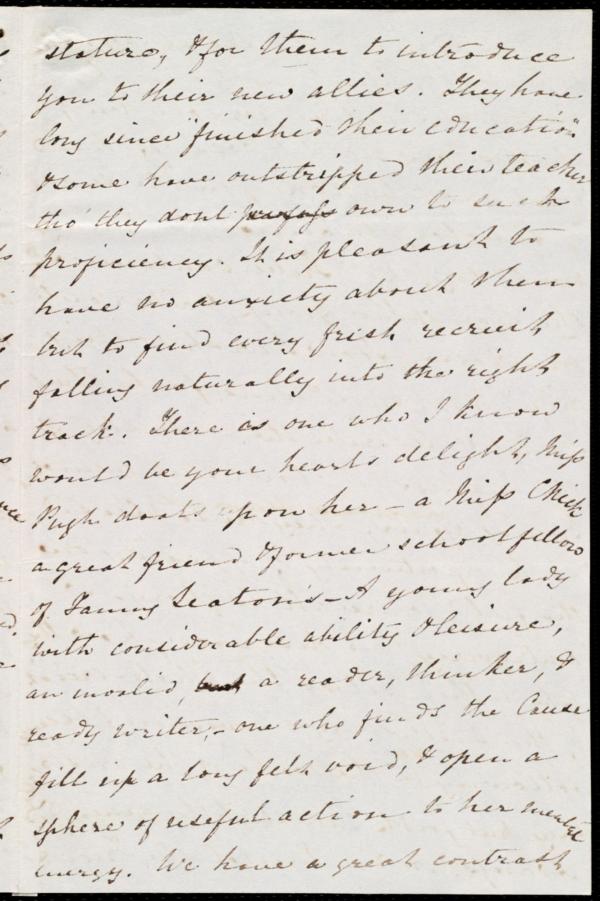 stature, & for them to introduce
you to their new allies. They have
long since "finished their education"
& some have outstripped their teacher
tho' they dont own to such
proficiency. It is pleasant to
have no anxiety about them
but to find every fresh recruit
falling naturally into the right
track. There is one who I know
would be your hearts delight, Miss
Pugh doats upon her – a Miss Chick
a great friend & former schoolfellow
of Fanny Seaton's – A young lady
with considerable ability & leisure,
an invalid, but a reader, thinker, &
ready writer, – one who finds the Cause
fill up a long felt void, & open a
sphere of useful action to her mental
energy. We have a great contrast